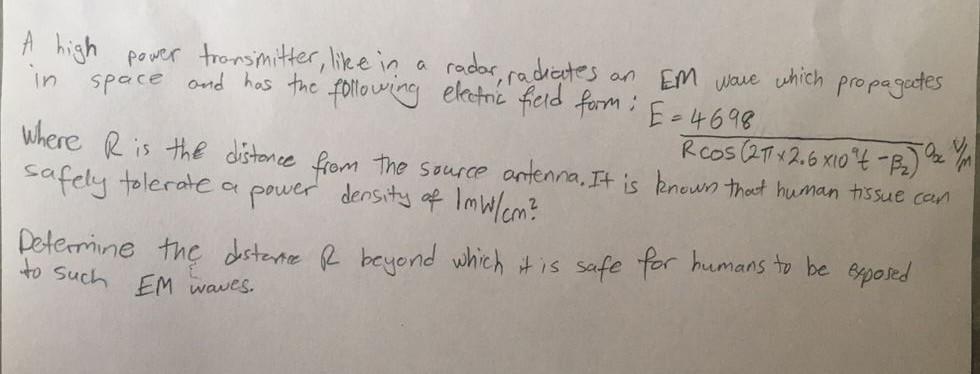 A high power transmitter, like in a radar, radiates an EM wave which propagates
in space and has the following electric field form: E = 4698
Rcos(2π×2.6×10⁹t - β₂) ax V/m
Where R is the distance from the source antenna. It is known that human tissue can
safely tolerate a power density of 1mW/cm².
Determine the distance R beyond which it is safe for humans to be exposed
to such EM waves.